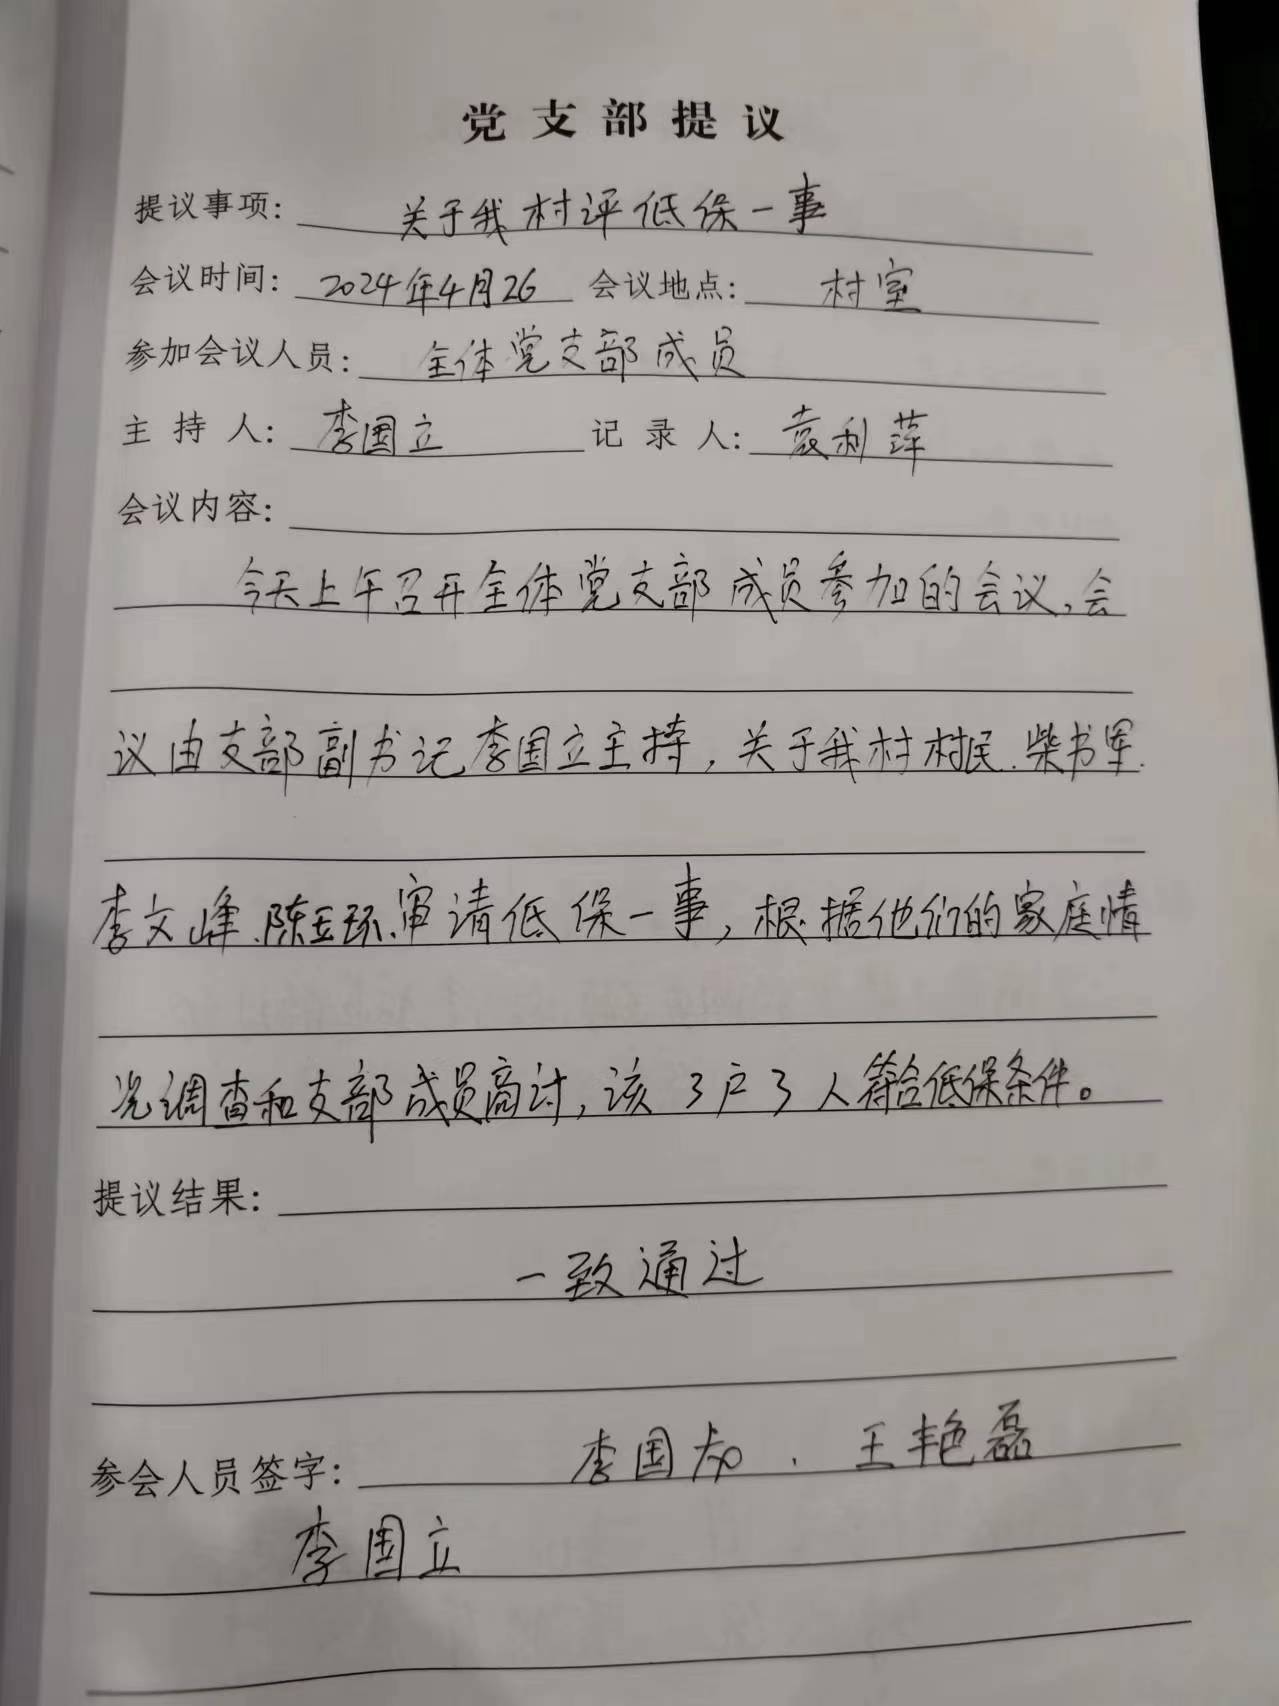 党支部提议
提议事项: 关于我村评低保一事
会议时间: 2024年4月26 会议地点: 村室
参加会议人员: 全体党支部成员
主持人: 李国立 记录人: 袁利萍
会议内容:
今天上午召开全体党支部成员参加的会议,会
议由支部副书记李国立主持,关于我村村民.柴书军.
李文峰.陈玉环.审请低保一事,根据他们的家庭情
况调查和支部成员商讨,该3户3人符合低保条件。
提议结果:
一致通过
参会人员签字: 李国 、王艳磊
李国立